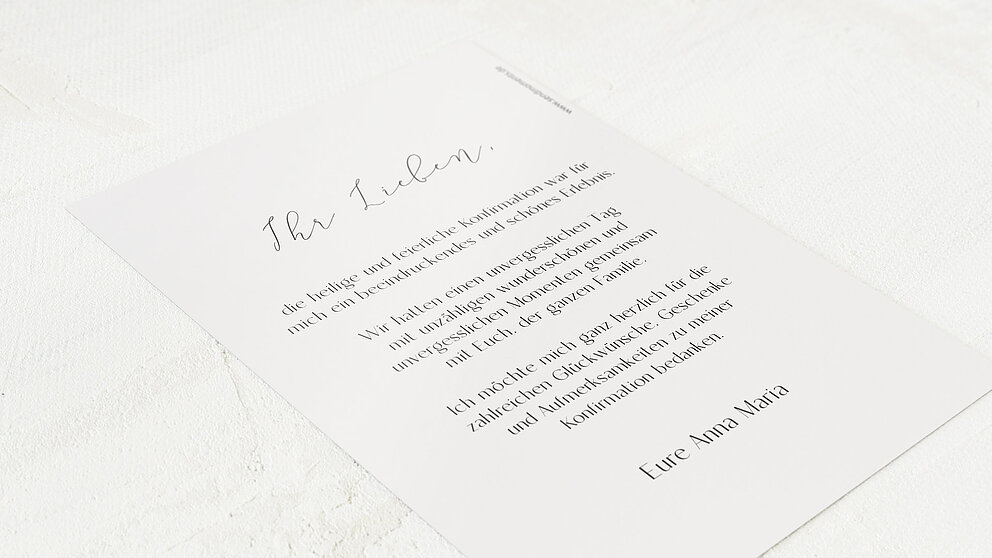 Ihr Lieben,
die heilige und feierliche Konfirmation war für
mich ein beeindruckendes und schönes Erlebnis.
Wir hatten einen unvergesslichen Tag
mit unzähligen wunderschönen und
unvergesslichen Momenten gemeinsam
mit Euch, der ganzen Familie.
Ich möchte mich ganz herzlich für die
zahlreichen Glückwünsche, Geschenke
und Aufmerksamkeiten zu meiner
Konfirmation bedanken.
Eure Anna Maria